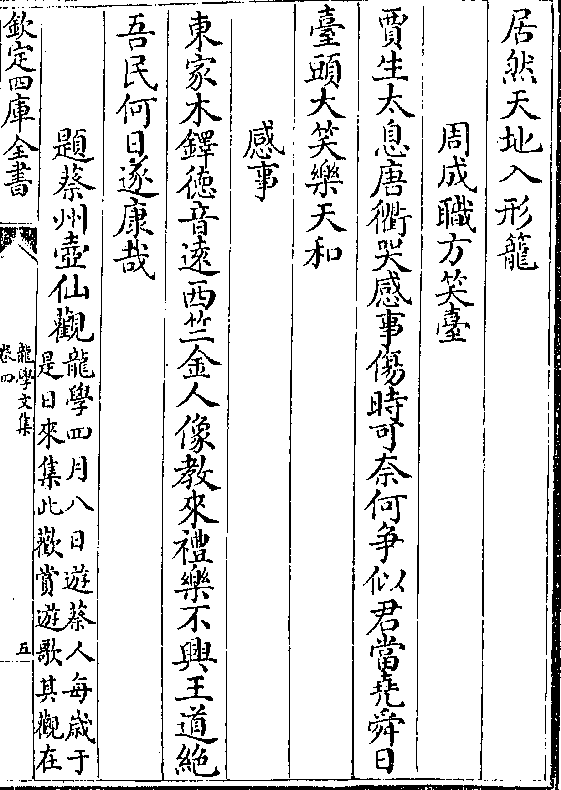 居然天地入形籠
周成職方笑臺
賈生太息唐衢哭感事傷時可奈何爭似君當堯舜日
臺頭大笑樂天和
感事
東家木鐸徳音遠西竺金人像教來禮樂不興王道絶
吾民何日遂康哉
題蔡州壺仙觀龍學四月八日遊蔡人每歳于
是日來集此歡賞遊歌其觀在
欽定四庫全書
龍學文集
卷四
五